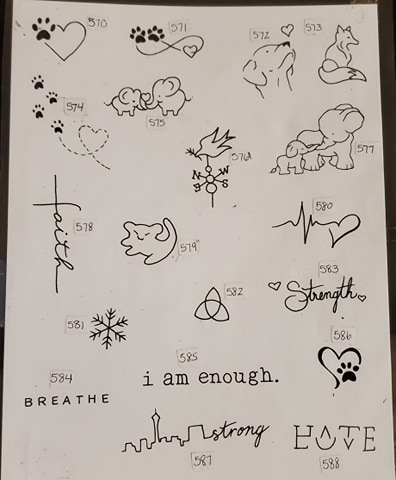 570
571
572
573
574
575
576
577
N
W
S
578
faith
579
580
581
582
583
Strength
584
585
586
BREATHE
i am enough.
587
strong
588